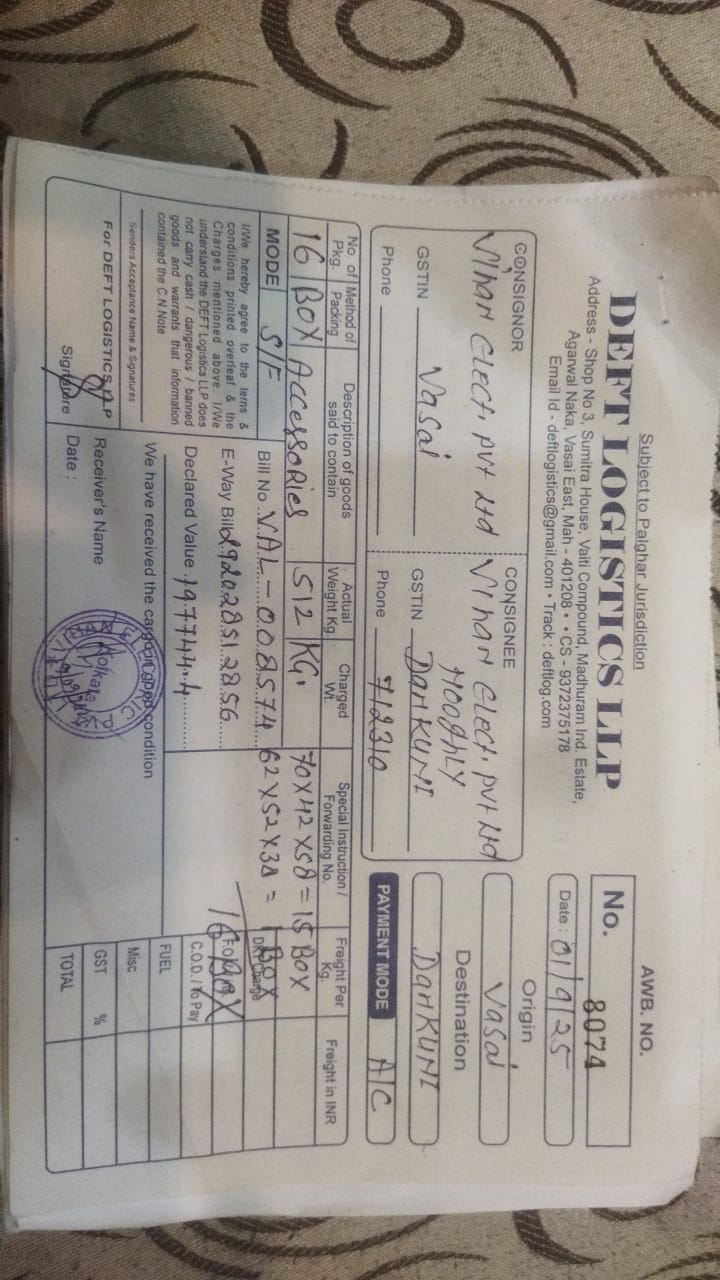 Subject to Palghar Jurisdiction
DEFT LOGISTICS LLP
Address - Shop No 3, Sumitra House, Vaiti Compound, Madhuram Ind. Estate,
Agarwal Naka, Vasai East, Mah - 401208 • • CS - 9372375178
Email Id - deftlogistics@gmail.com • Track : deftlog.com
AWB. NO.
No. 8074
Date : 01/9/25
CONSIGNOR
Vihar Elect. Pvt Ltd
GSTIN Vasai
Phone
CONSIGNEE
Vihar Elect. Pvt Ltd
HooghLY
GSTIN DANKUNI
Phone 712310
Origin
Vasai
Destination
DANKUNI
PAYMENT MODE A/C
No. of Pkg. Method of Packing Description of goods said to contain Actual Weight Kg. Charged Wt. Special Instruction / Forwarding No. Freight Per Kg. Freight in INR
16 BOX Accessories 512 KG. 70X42X58 = 15 BOX
62X52X38 = 1 BOX
16 BOX
MODE S/F
Bill No. VAL-008574
E-Way Bill
Declared Value 197744.4
C.O.D. / To Pay
FUEL
Misc
GST %
TOTAL
I/We hereby agree to the terns &
conditions printed overleaf & the
Charges mentioned above I/We
understand the DEFT Logistics LLP does
not carry cash / dangerous / banned
goods and warrants that information
contained the C.N Note
Senders Acceptance Name & Signatures
For DEFT LOGISTICS LLP
Signature
We have received the cargo in good condition
Receiver's Name
Date :
Kolkata